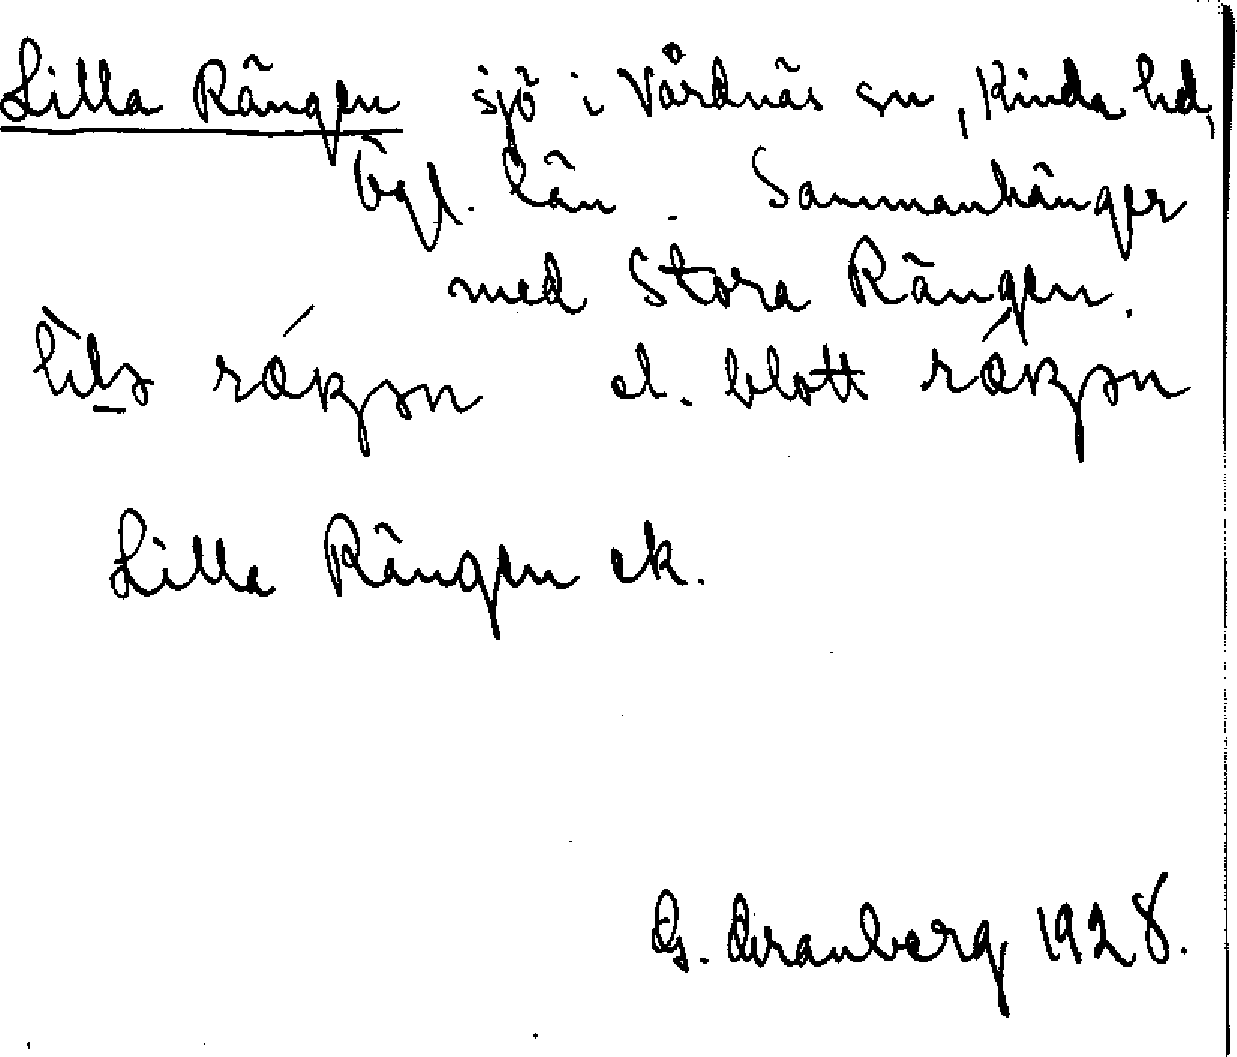 Lilla Rängen sjö i Vårdnäs sn, Kinda hd,
Ögl. län. Sammanhänger
med Stora Rängen.
el. blott
Lilla Rängen ek.
G. Granberg 1928.